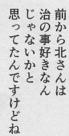 前から北さんは
治の事好きなん
じゃないかと
思ってたんですけどね